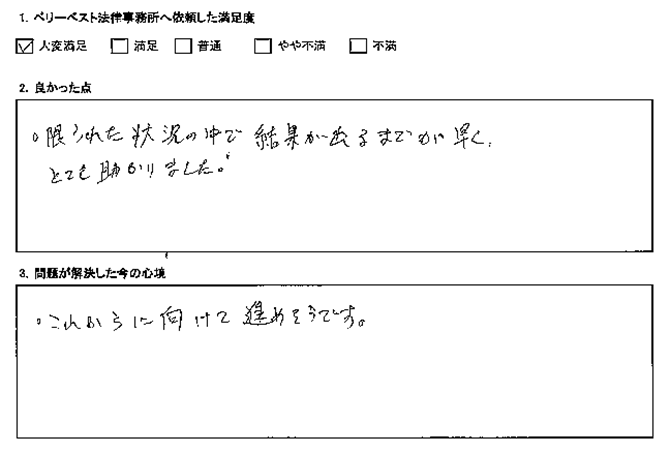 1. ベリーベスト法律事務所へ依頼した満足度
☑ 大変満足 □ 満足 □ 普通 □ やや不満 □ 不満
2. 良かった点
。限られた状況の中で 結果が出るまでが 早く、
とても助かりました。
3. 問題が解決した今の心境
。これからに向けて 進めそうです。